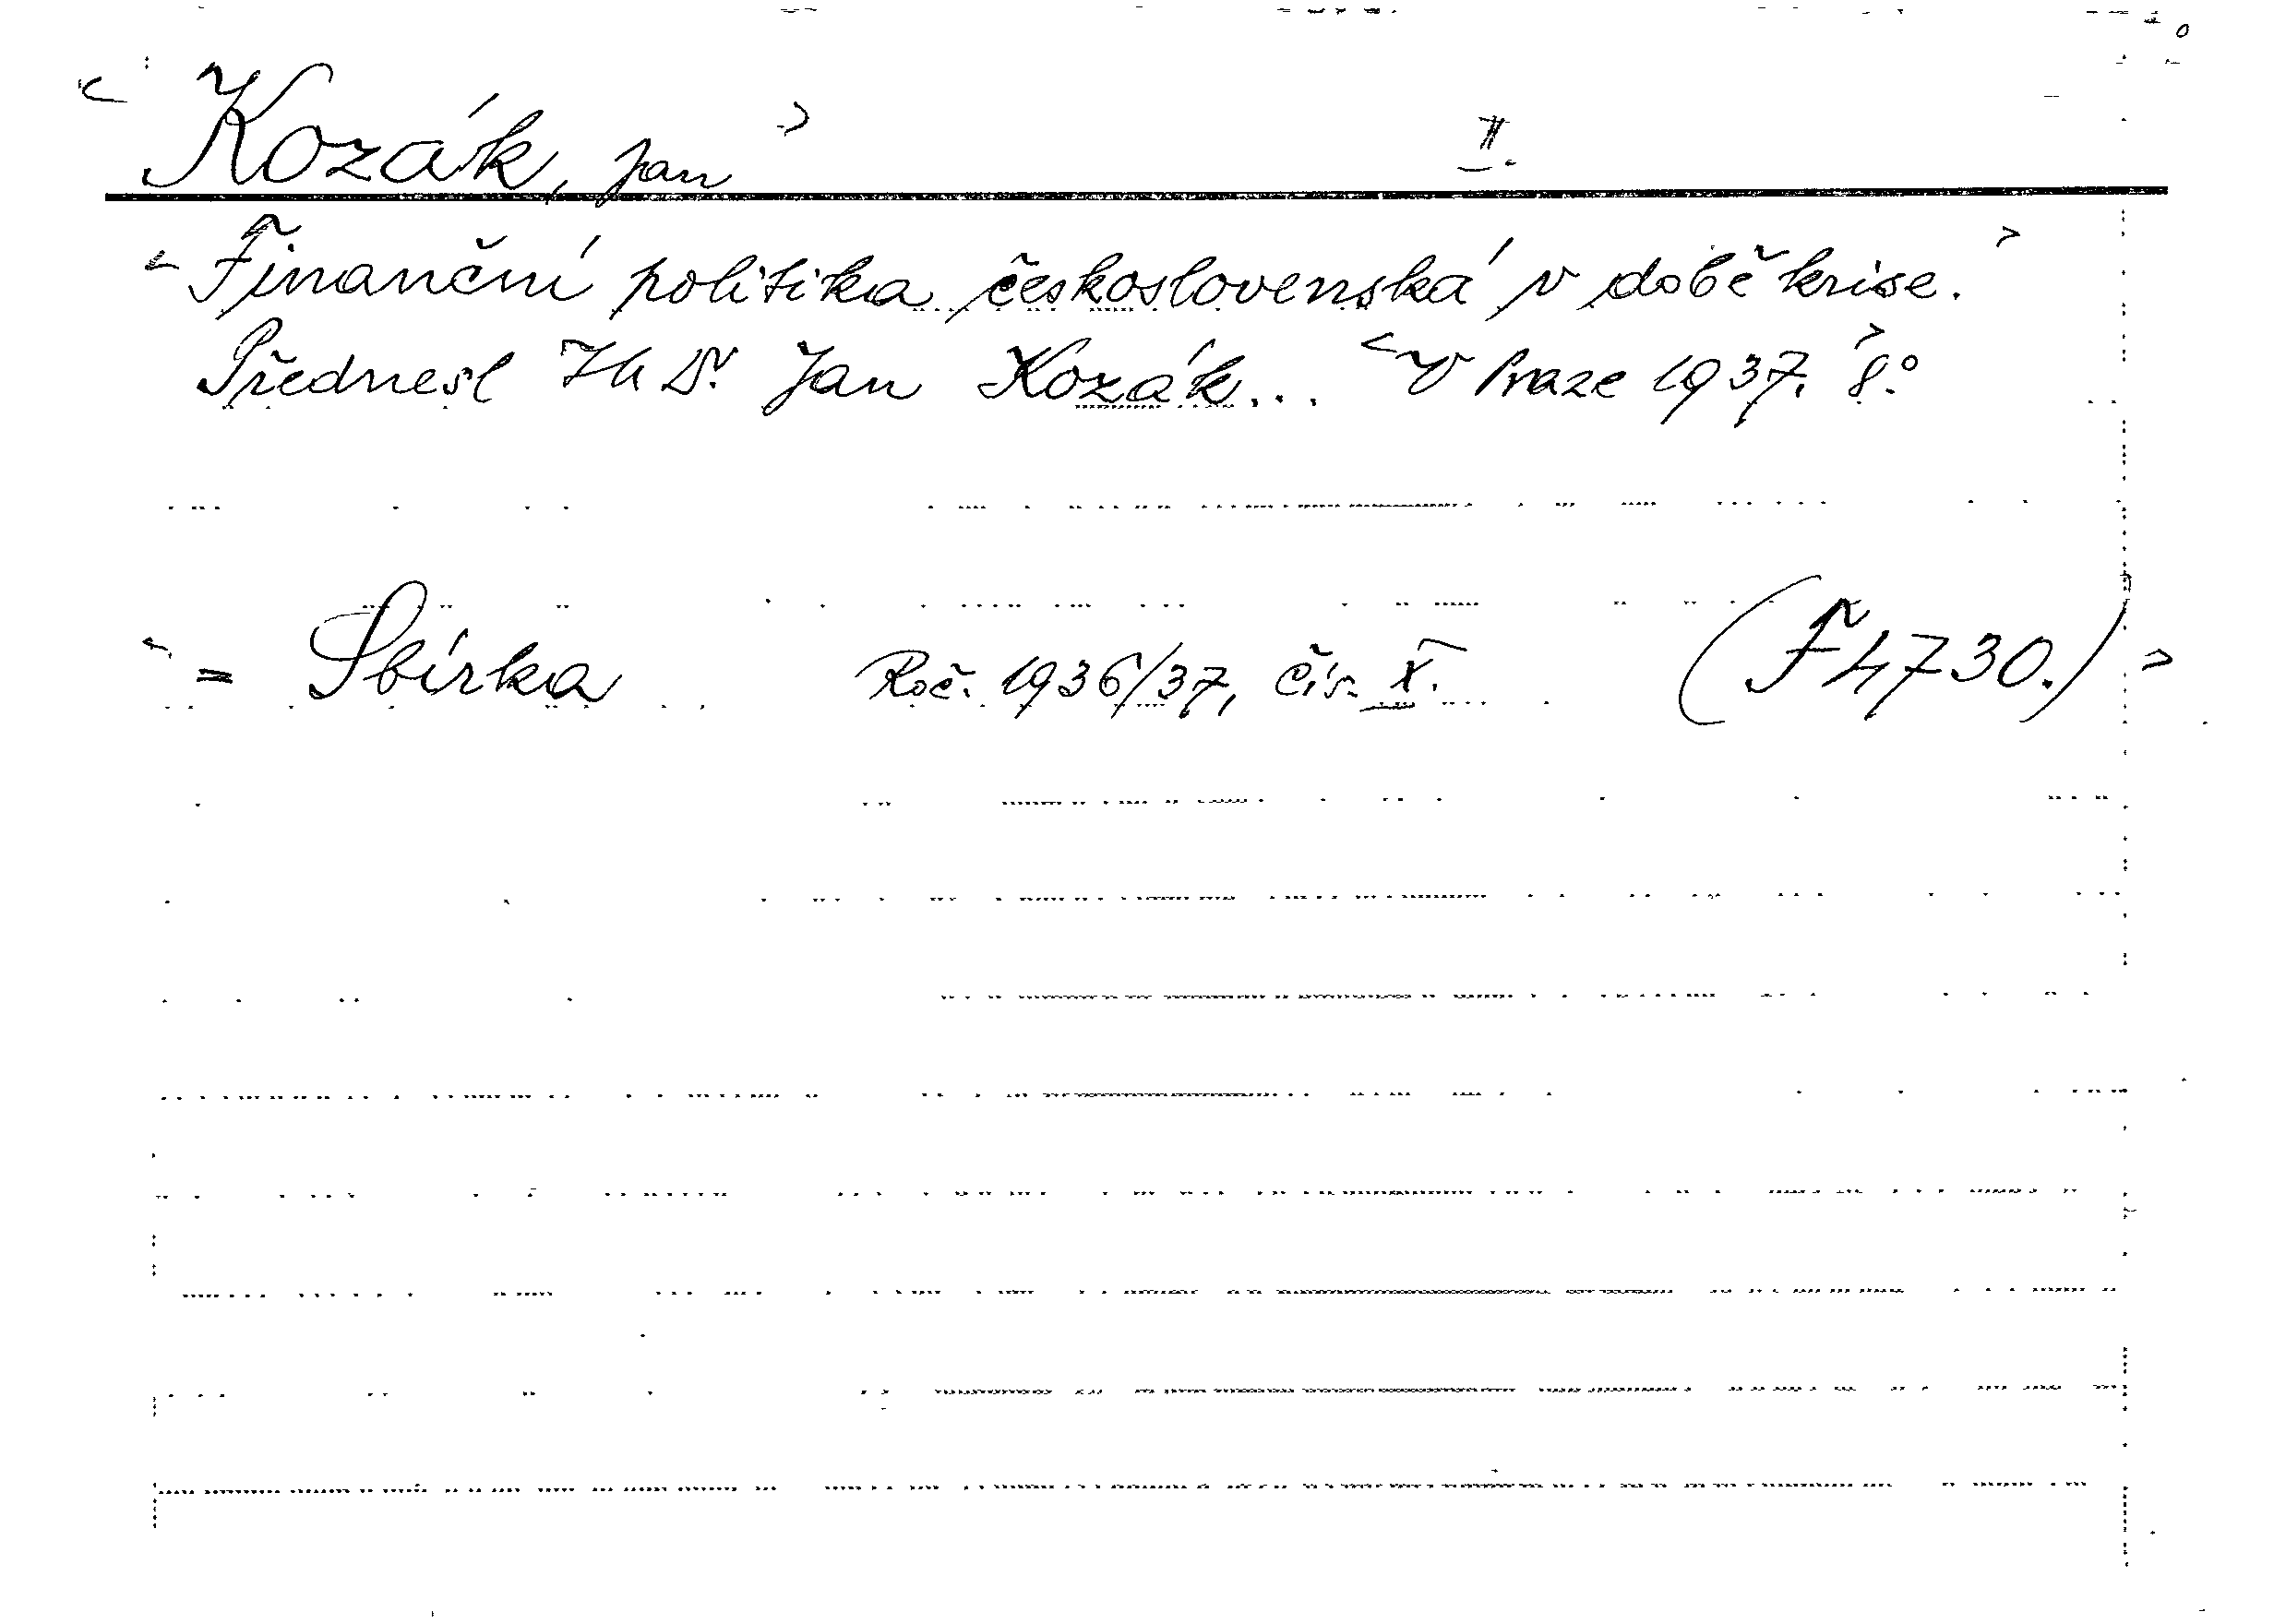 < Kozák, Jan > II.
< Finanční politika československá v době krise. >
Přednesl JU Dr. Jan Kozák... < V Praze 1937. > 8.°
< = Sbírka Roč. 1936/37, čís. X. (F 4730.) >